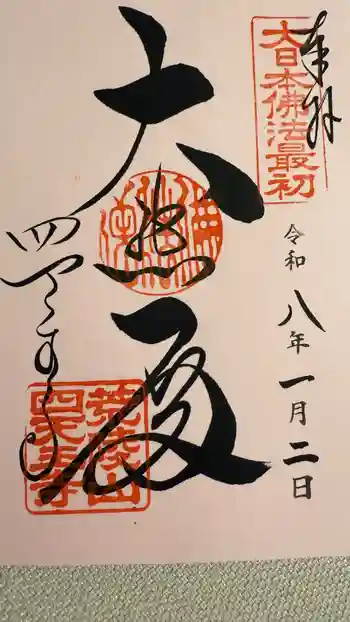 奉拝
大日本佛法最初
令和八年一月二日
大悲殿
四天王寺
荒陵山
四天王寺